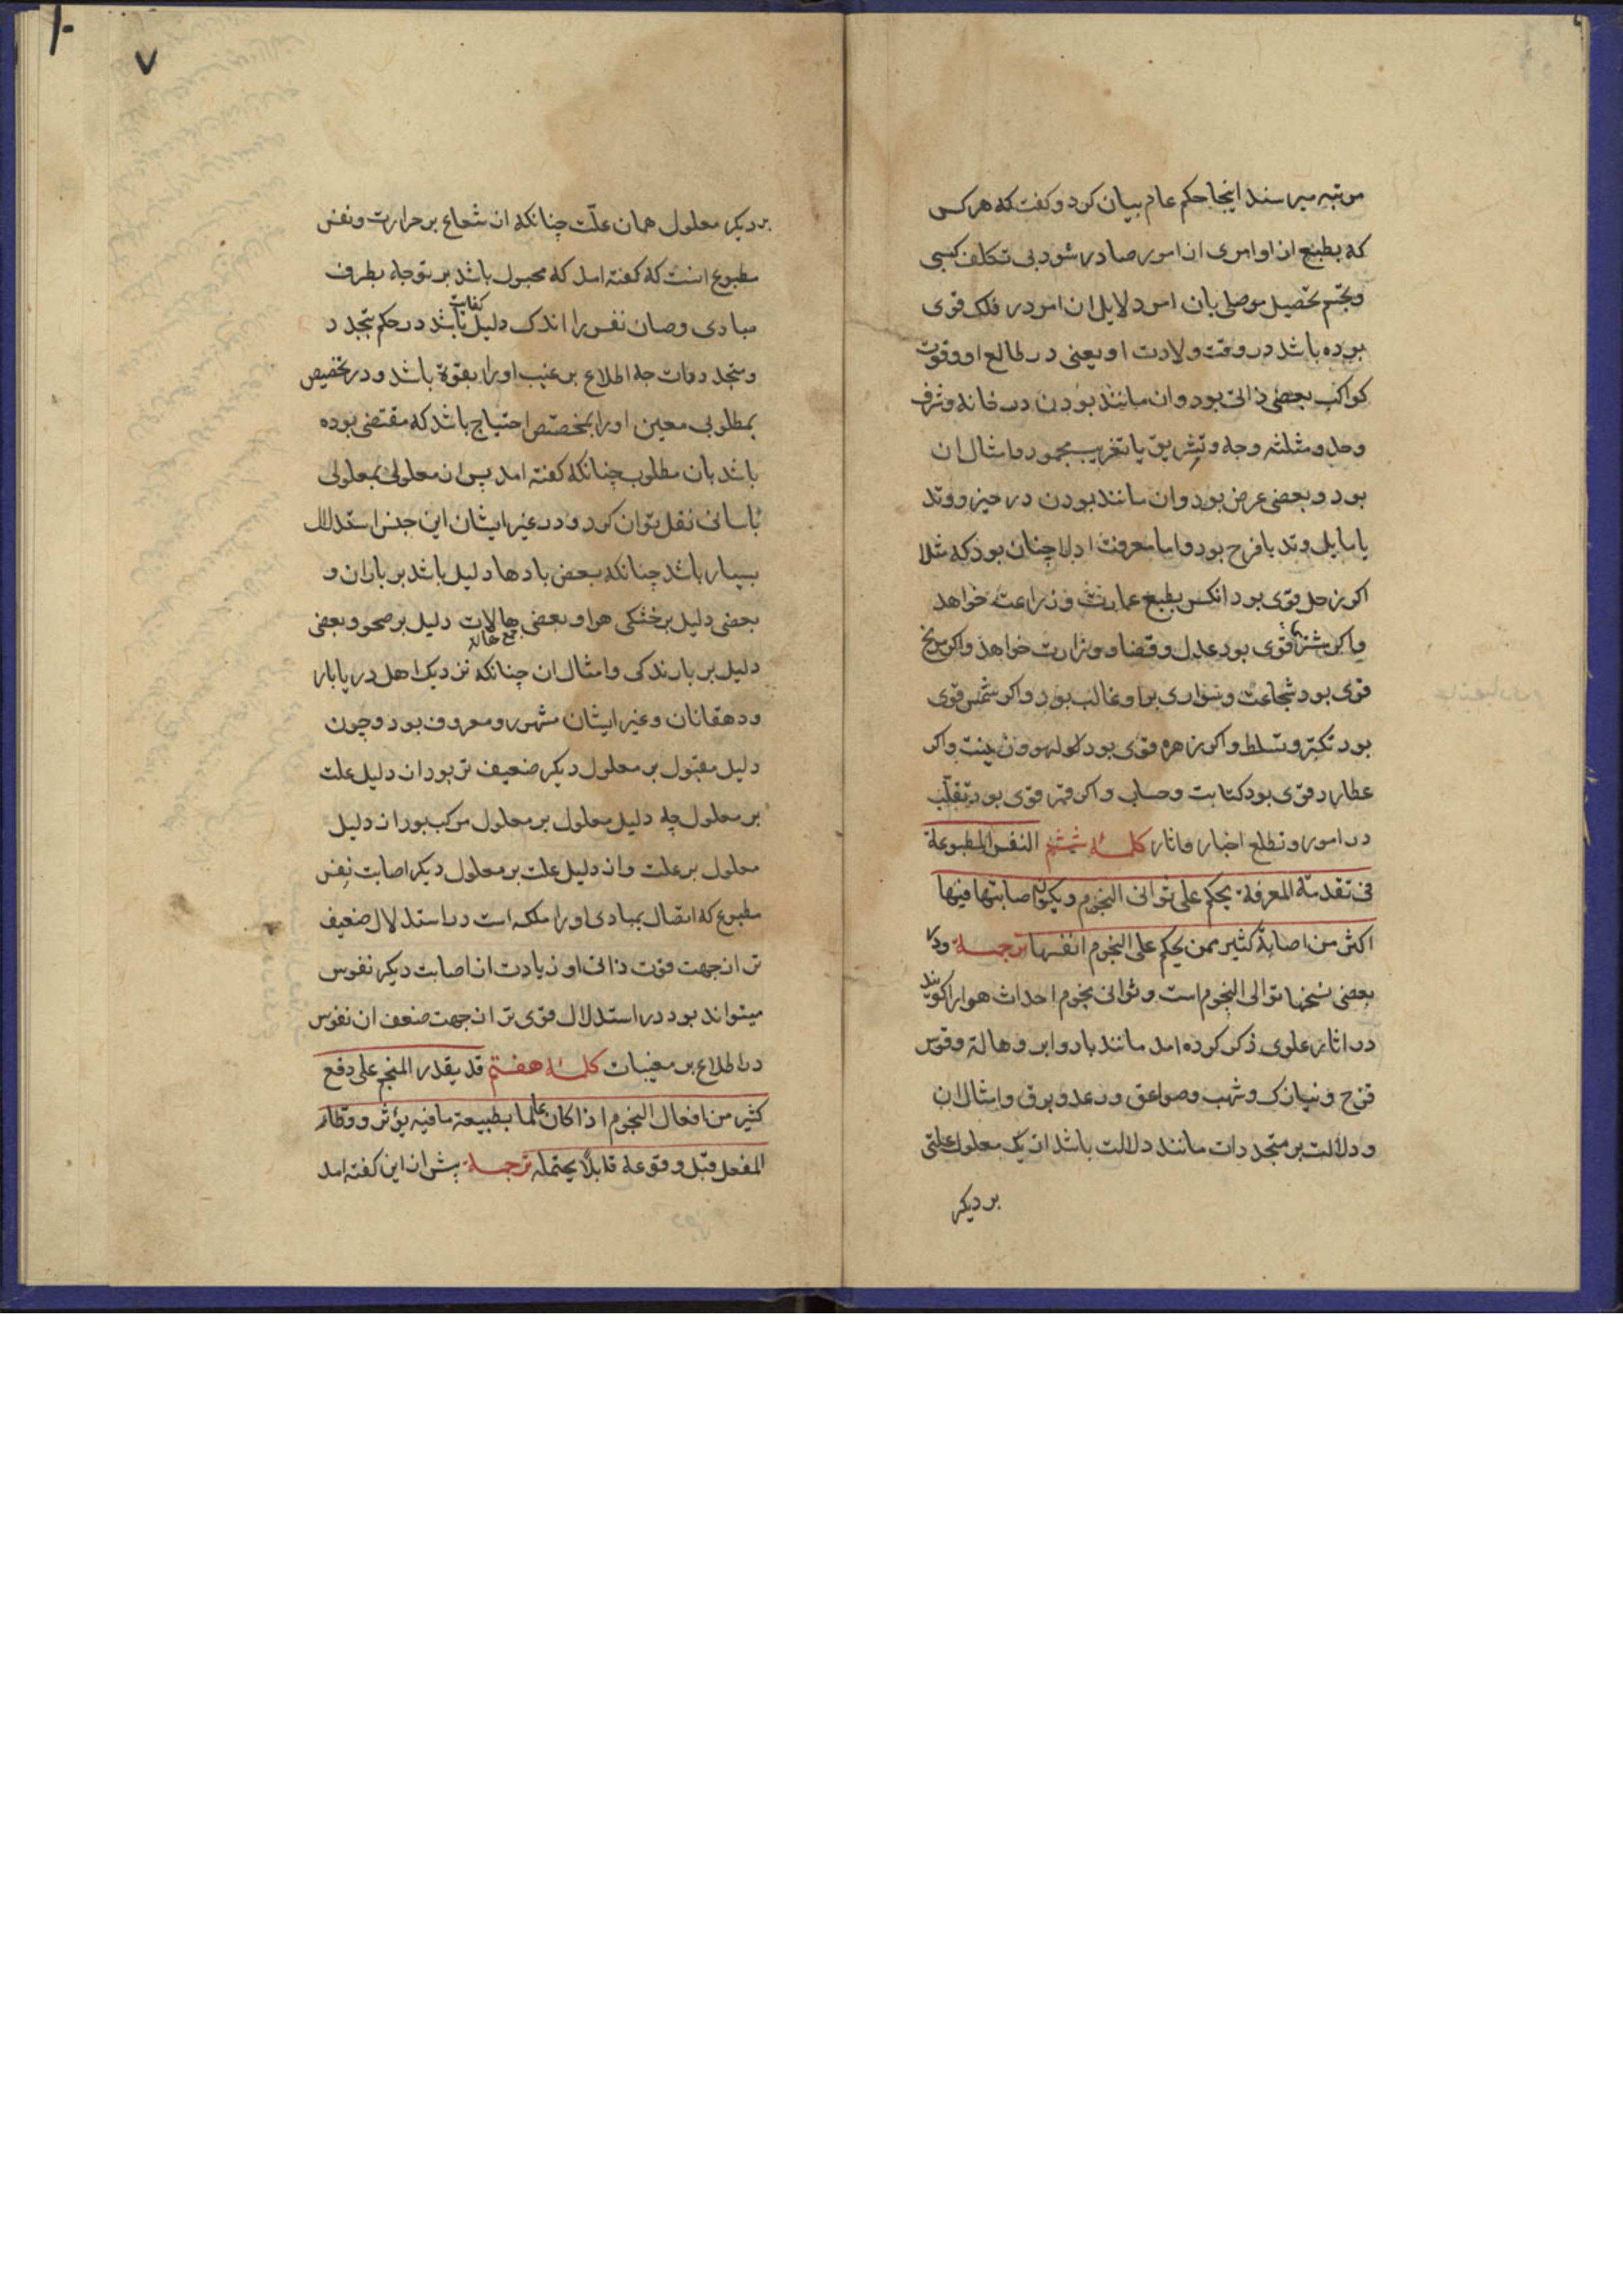 مرتبه میرسند اینجا حکم عام بیان کرد و کفت که هر کس
که بطبع از او امری از امور صادر شود بی تکلف کسبی
و تجشم تحصیل موصلی بان امر دلایل ان امر در فلک قوی
بوده باشد در وقت ولادت او یعنی در طالع او و قوت
کواکب بعضی ذاتی بود وان مانند بودن در خانه و شرف
وحد و مثلثه و وجه و تشریق یا تغریب محمود و امثال ان
بود و بعضی عرضی بود وان مانند بودن در حیز و وتد
یا مایلی وتد یا فرح بود واما معرفت ادلا چنان بود که مثلا
اکر زحل قوی بود انکس بطبع عمارت و زراعت خواهد
واکر مشتری قوی بود عدل وقضا و وزارت خواهد واکر مریخ
قوی بود شجاعت وسواری بر او غالب بود واکر شمس قوی
بود تکبر و تسلط واکر زهره قوی بود لهو و زینت واکر
عطارد قوی بود کتابت وحساب واکر قمر قوی بود تقلب
در امور و تطلع اخبار واثار کلمهٔ ششم النفس المطبوعة
فی تقدمة المعرفة یحکم علی ثوانی النجوم و یکون اصابتها فیها
اکثر من اصابة کثیر ممن یحکم علی النجوم انفسها ترجمه ودر
بعضی نسخها توالی النجوم است و ثوانی نجوم احداث هوا را کویند
در اثار علوی ذکر کرده امد مانند باد وابر وهاله وقوس
قزح و نیازک و شهب وصواعق ورعد وبرق وامثال ان
و دلالت بر متجددات مانند دلالت باشد از یک معلول علتی
بر دیکر
۷
بر دیکر معلول همان علّت چنانکه از شعاع بر حرارت ونفس
مطبوع انست که کفته امد که مجبول باشد بر توجه بطرف
مبادی وصان نفس را اندک دلیل کفایت باشد در حکم بتجدد
و متجددات چه اطلاع بر غیب او را بقوة باشد و در تخصیص
بمطلوبی معین او را بمخصّص احتیاج باشد که مقتضی بوده
باشد بان مطلوب چنانکه کفته امد پس از معلولی بمعلولی
باسانی نقل توان کرد و در غیر ایشان این جنس استدلال
بسیار باشد چنانکه بعضی بادها دلیل باشد بر باران و
بعضی دلیل بر خشکی هوا و بعضی هالات دلیل بر صحو و بعضی
دلیل بر بارندکی وامثال ان چنانکه نزدیک اهل دریا بار
ودهقانان وغیر ایشان مشهور ومعروف بود وچون
دلیل مقبول بر معلول دیکر ضعیف تر بود از دلیل علت
بر معلول چه دلیل معلول بر معلول مرکب بود از دلیل
معلول بر علت واز دلیل علت بر معلول دیکر اصابت نفس
مطبوع که اتصال بمبادی او را ملکه است در استدلال ضعیف
تر از جهت قوت ذاتی او زیادت از اصابت دیکر نفوس
میتواند بود در استدلال قوی تر از جهت ضعف ان نفوس
در اطلاع بر مغیبات کلمهٔ هفتم قد یقدر المنجم علی دفع
کثیر من افعال النجوم اذا کان عالما بطبیعة ما فیه یؤثر و وطّا
المفعل قبل وقوعه قابلا یحتمله ترجمه پیش از این کفته امد